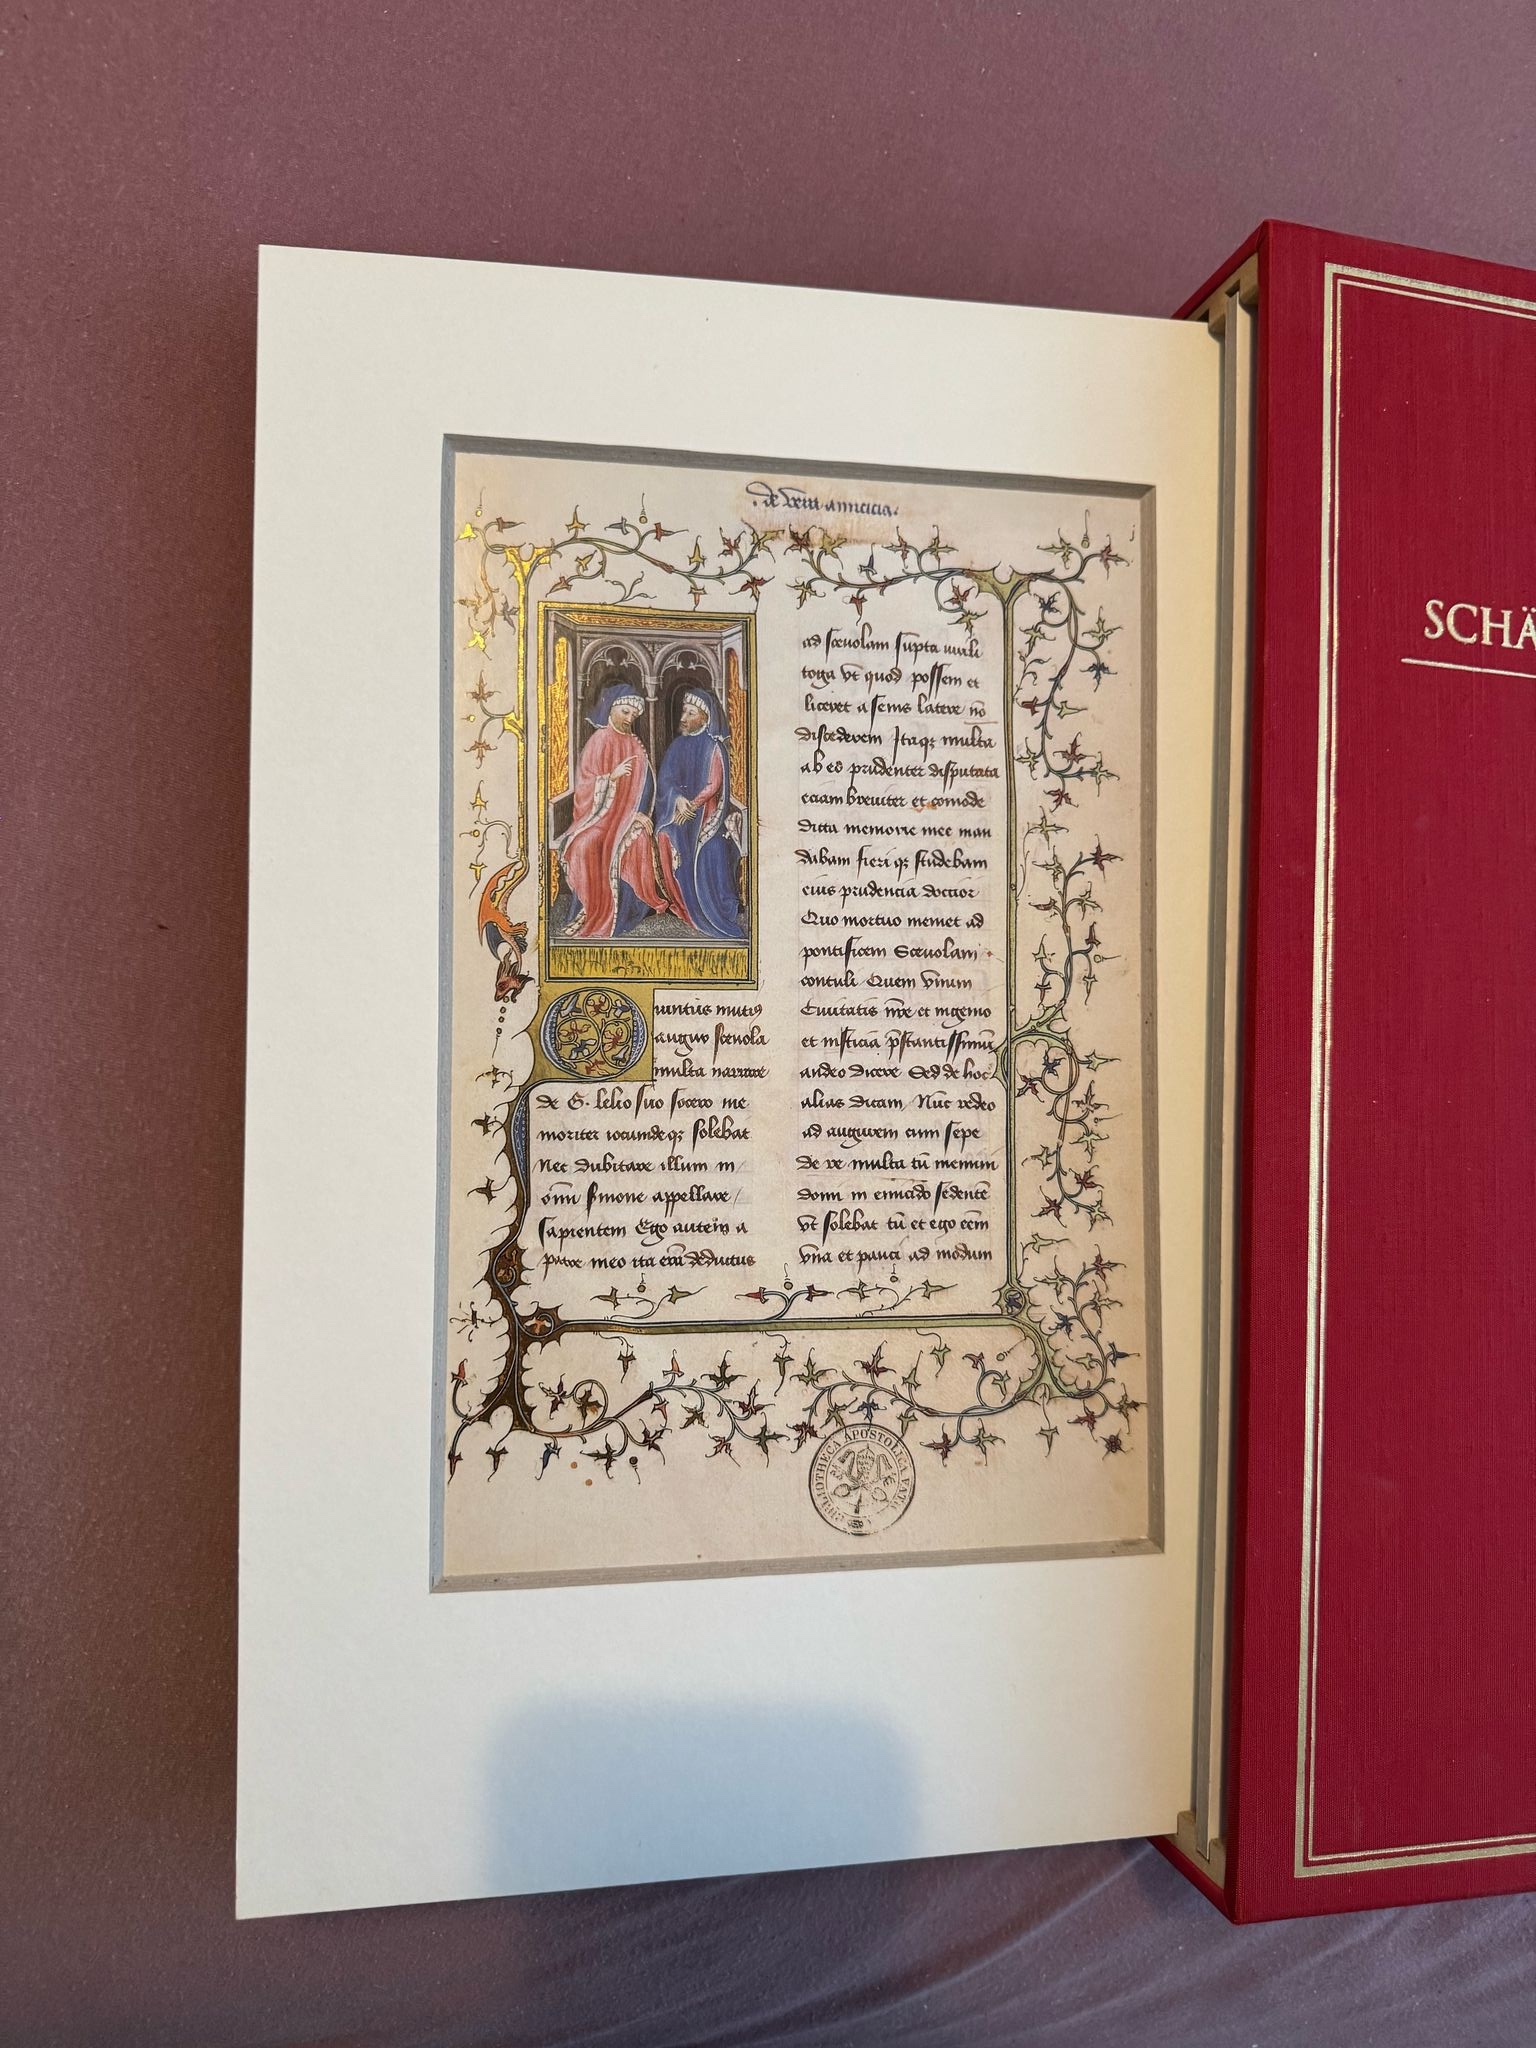 .de vera amicicia.
uintus mutius
augur scevola
multa narrare
de G. lelio suo socero me
moriter iocundeqz solebat
Nec dubitare illum in
omi smone appellare
sapientem Ego autem a
patre meo ita eram deductus
ad scevolam supta virili
toga vt quod possem et
liceret a senis latere no
discederem Itaqz multa
ab eo prudenter disputata
eciam breviter et comode
dicta memorie mee man
dabam fieri qz studebam
eius prudencia doctior
Quo mortuo memet ad
pontificem Scevolam
contuli Quem vnum
Civitatis nre et ingenio
et iusticia pstantissimum
audeo dicere Sed de hoc
alias dicam Nuc redeo
ad augurem cum sepe
de re multa tu memini
domi in emicido sedente
vt solebat tu et ego eem
vna et pauci ad modum
BIBLIOTHECA APOSTOLICA VATIC
SCHÄ